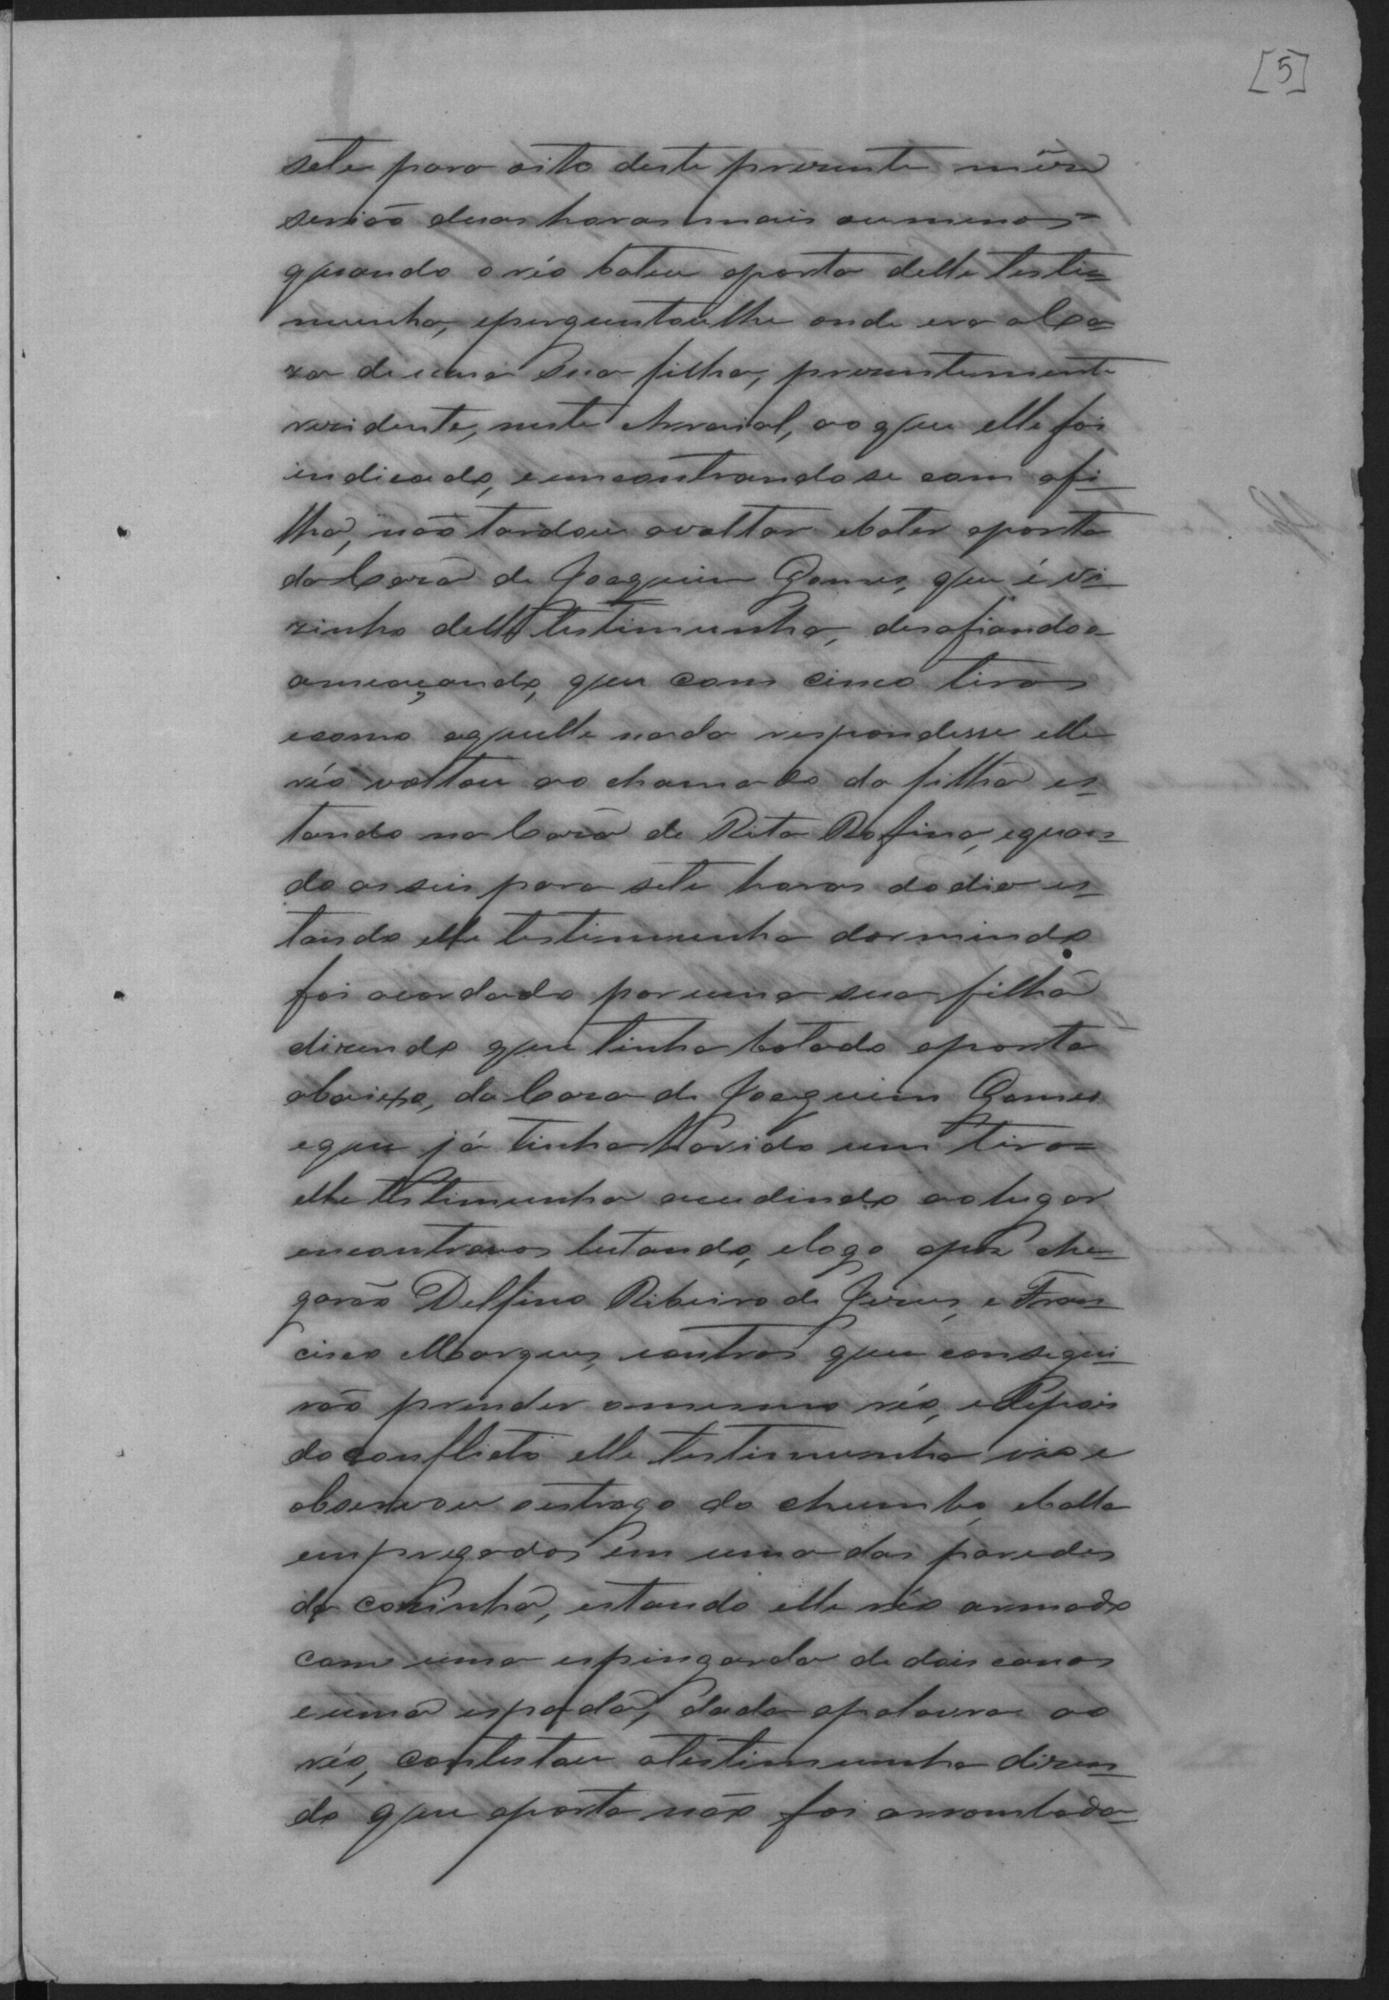 [5]
sete para oito deste prezente mêz
serião duas horas mais ou menos=
quando o réo bateu aporta delle teste=
munha, eperguntoulhe onde era a Ca=
za de uma sua filha, prezentemente
rezidente, neste Arraial, ao que elle foi
indicado, eencontrandose com afi=
lha, não tardou avoltar ebater aporta
da Caza de Joaquim Gomes, que é vi=
zinho delle testimunha, desafiandoo
ameaçando, que com cinco tiros
ecomo aquelle nada respondesse elle
réo voltou ao chamado da filha es=
tando na Caza de Rita Rofina, equan=
do as seis para sete horas do dia es=
tando elle testimunha dormindo
foi acordado por uma sua filha
dizendo que tinha botado aporta
abaixo, da Caza de Joaquim Gomes
eque já tinha havido um tiro=
elle testimunha acudindo ao lugar
encontravos lutando, elogo apoz che=
garão Delfino Ribeiro de Jezus, e Fran=
cisco Marques, eoutros que consegui=
rão prender omesmo réo, e depois
do conflicto elle testimunha vio e
observou oestrago do chumbo, eballa
empregados em uma das paredes
da cozinha, estando elle réo armado
com uma espingarda de dois canos
euma espada, dada apalavra ao
réo, contestou atestimunha dizen=
do que aporta não foi arrombada=